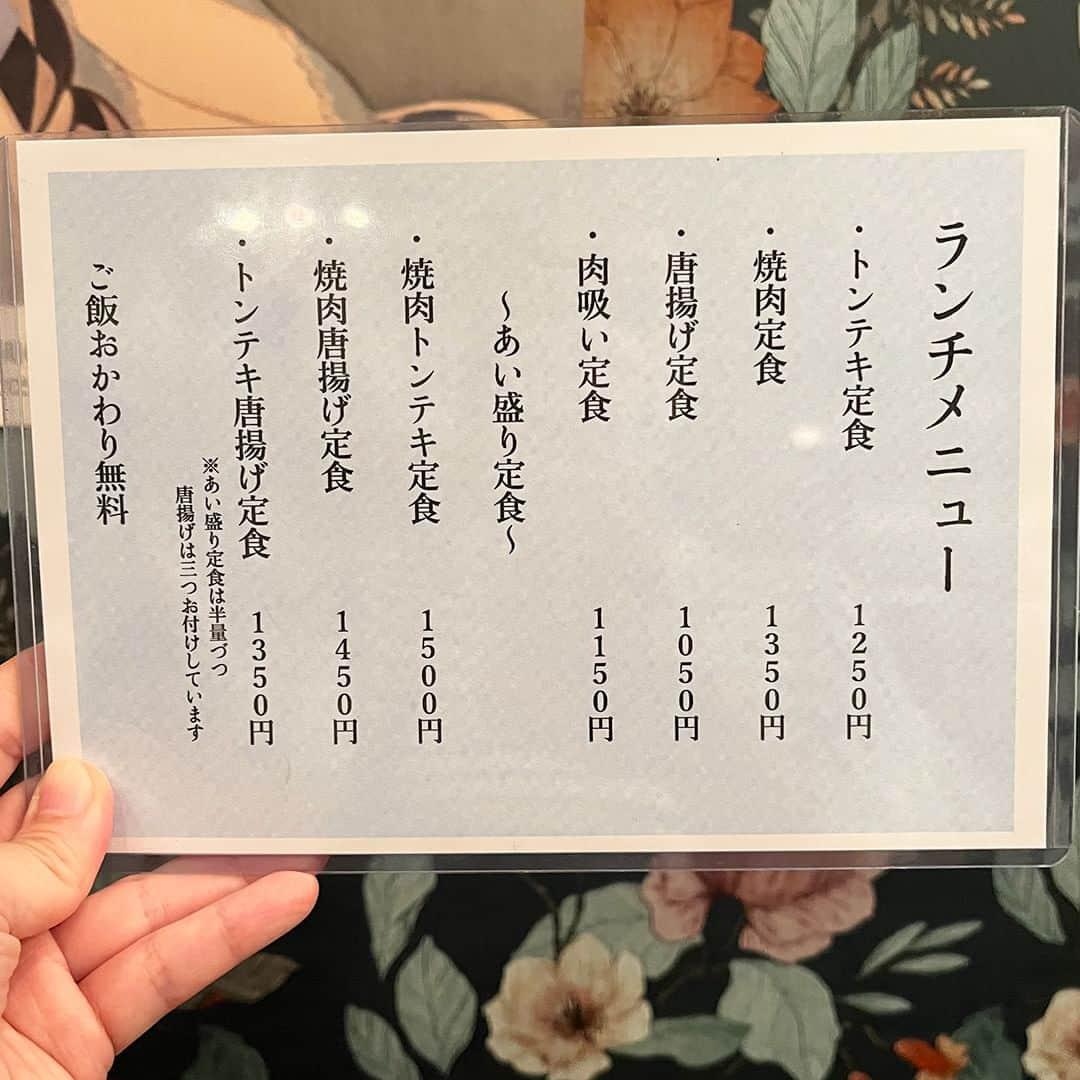 ランチメニュー
・トンテキ定食 1250円
・焼肉定食 1350円
・唐揚げ定食 1050円
・肉吸い定食 1150円
〜あい盛り定食〜
・焼肉トンテキ定食 1500円
・焼肉唐揚げ定食 1450円
・トンテキ唐揚げ定食 1350円
※あい盛り定食は半量づつ
唐揚げは三つお付けしています
ご飯おかわり無料